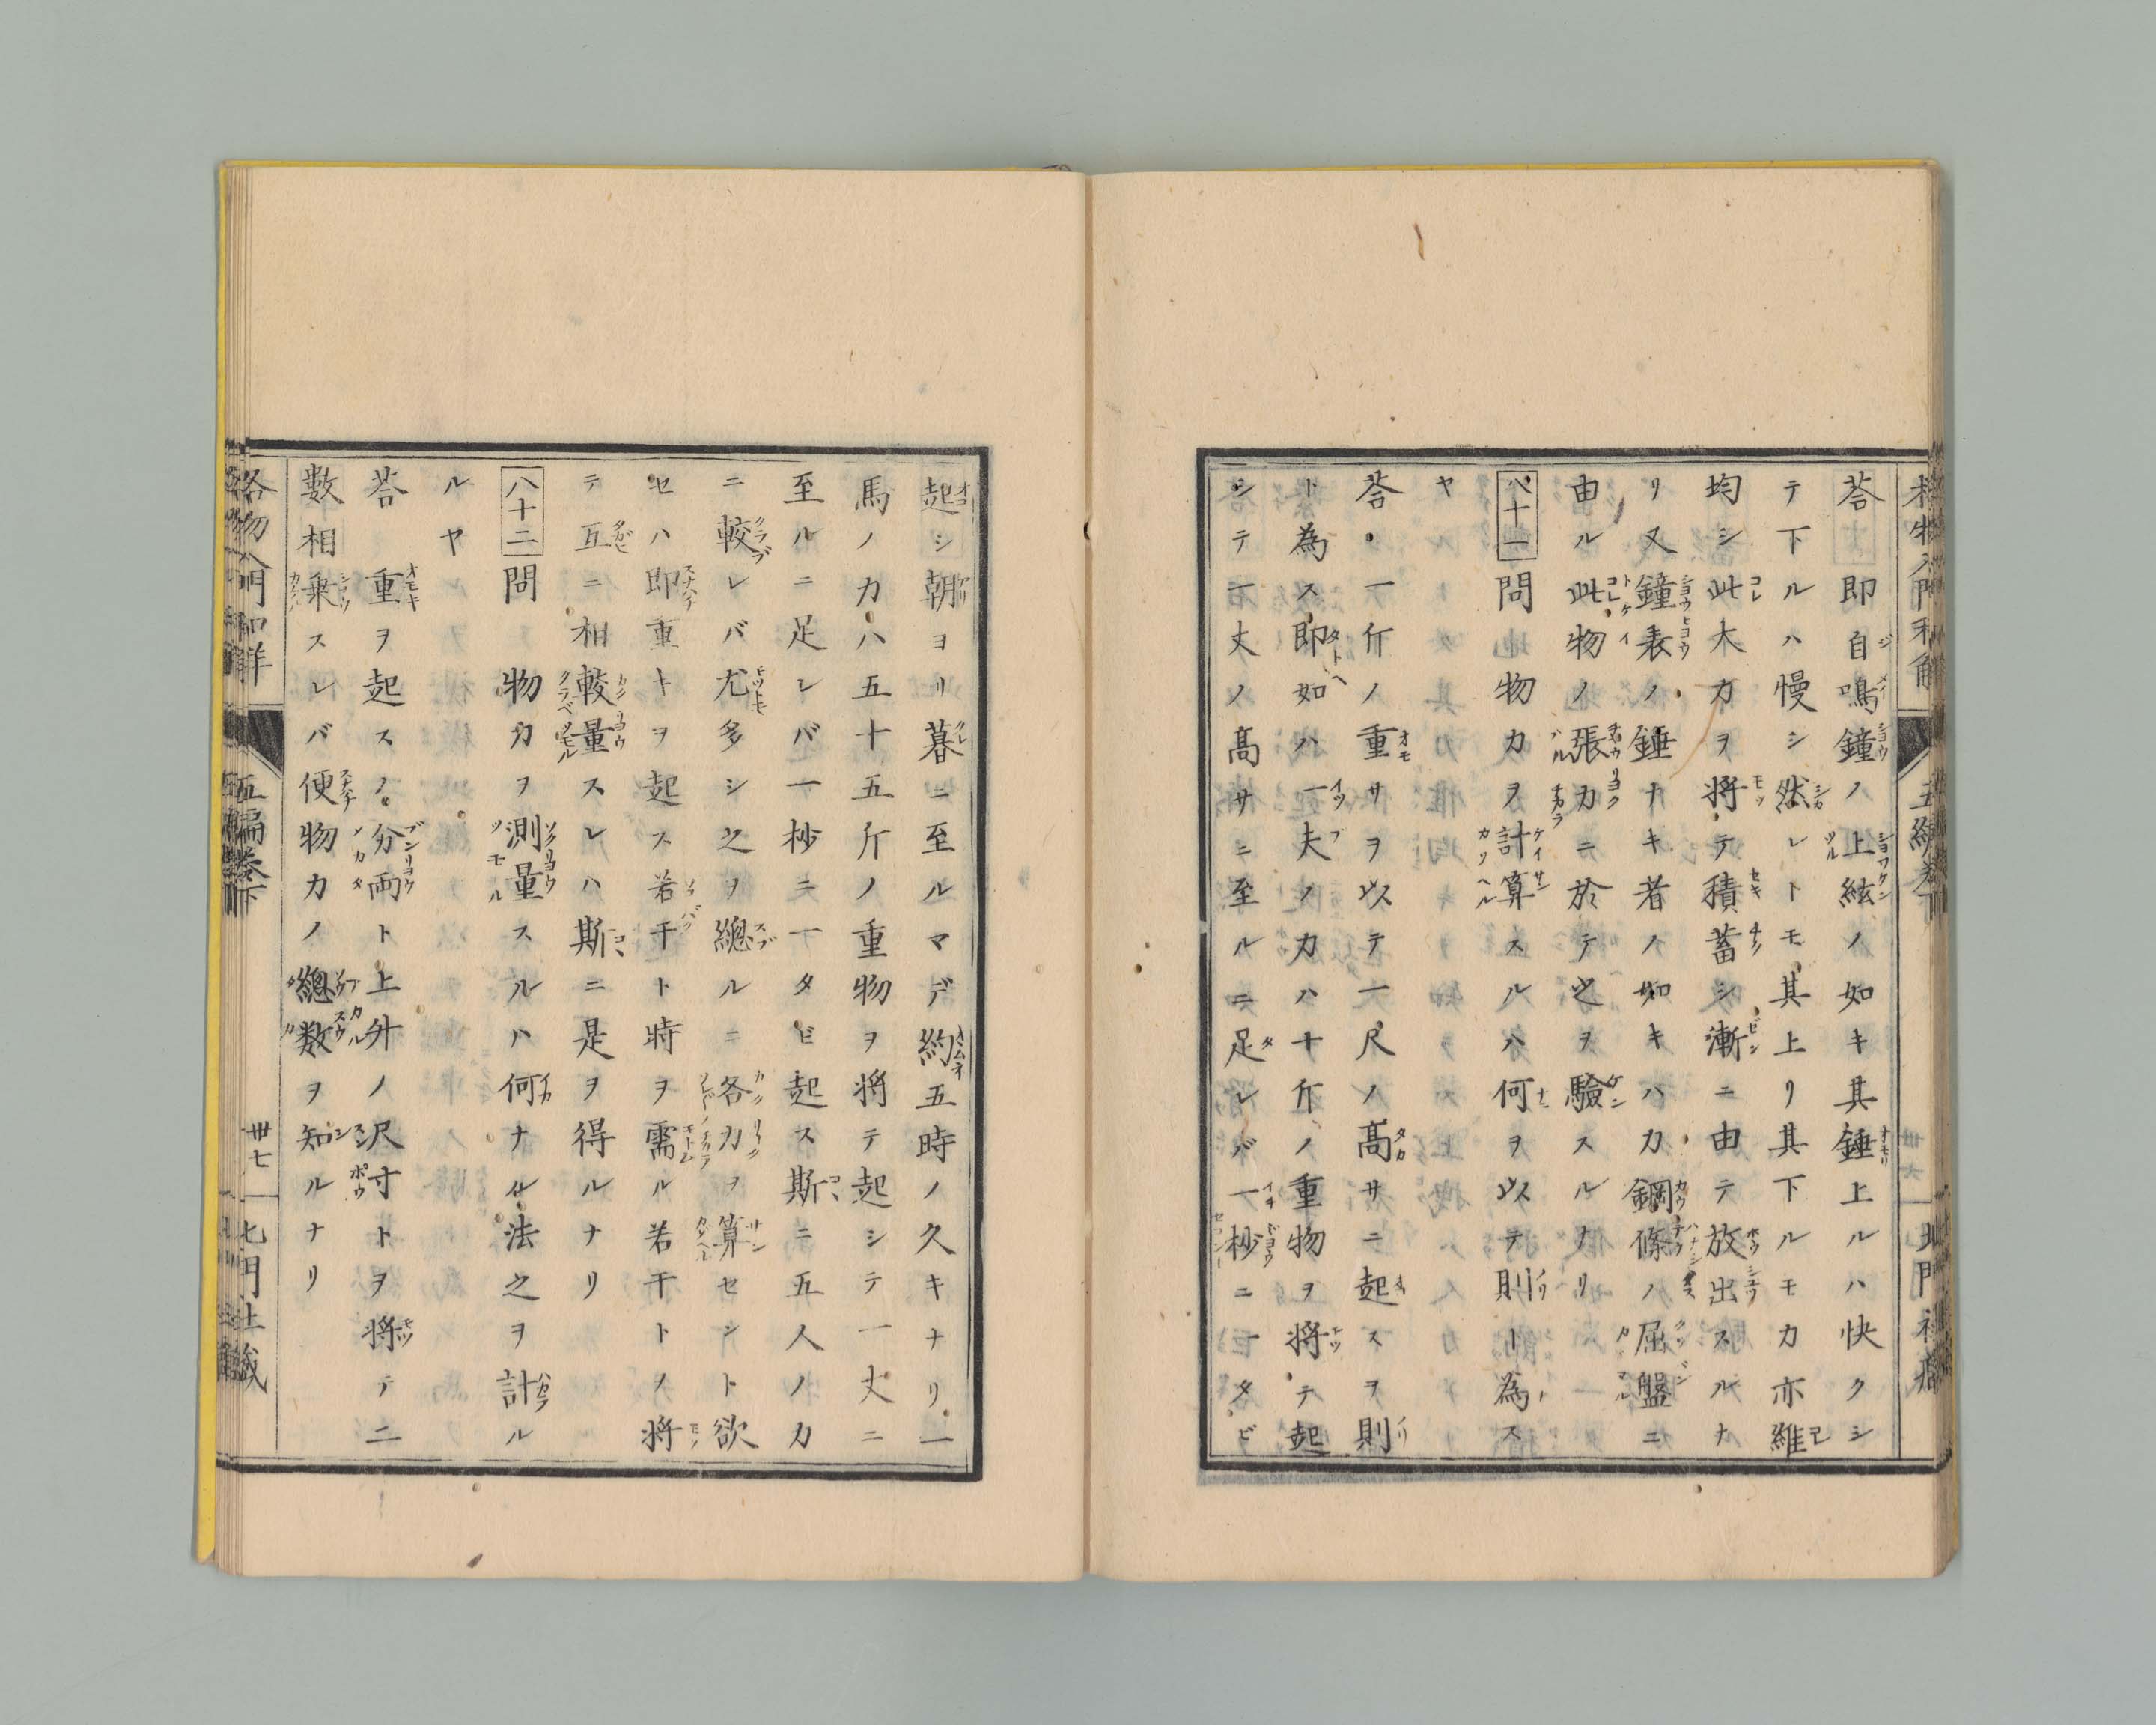 答　即自鳴鐘ノ上絃ノ如キ其錘上ルハ快クシ
テ下ルハ慢シ然レトモ其上リ其下ルモ力亦維
均シ此大力ヲ将テ積蓄シ漸ニ由テ放出スルナ
リ又鐘表ノ錘ナキ者ノ如キハ力鋼條ノ屈盤ニ
由ル此物ノ張力ニ於テ之ヲ驗スルナリ
八十一　問　物力ヲ計算スルハ何ヲ以テ則ト為ス
ヤ
答　一斤ノ重サヲ以テ一尺ノ高サニ起スヲ則
ト為ス即如ハ一夫ノ力ハ十斤ノ重物ヲ将テ起
シテ一丈ノ高サニ至ルニ足レバ一秒ニ一タビ
起シ朝ヨリ暮ニ至ルマデ約五時ノ久キナリ一
馬ノ力ハ五十五斤ノ重物ヲ将テ起シテ一丈ニ
至ルニ足レバ一秒ニ一タビ起ス斯ニ五人ノ力
ニ較レバ尤多シ之ヲ總ルニ各力ヲ算セシト欲
セハ即重キヲ起ス若干ト時ヲ需ル若干トノ将
テ互ニ相較量スレハ斯ニ是ヲ得ルナリ
八十二　問　物力ヲ測量スルハ何ナル法之ヲ計ル
ルヤ
答　重ヲ起スノ分両ト上升ノ尺寸トヲ将テ二
數相乗スレバ便物力ノ總数ヲ知ルナリ
格物入門和解　五編巻下　卅七　北門社蔵